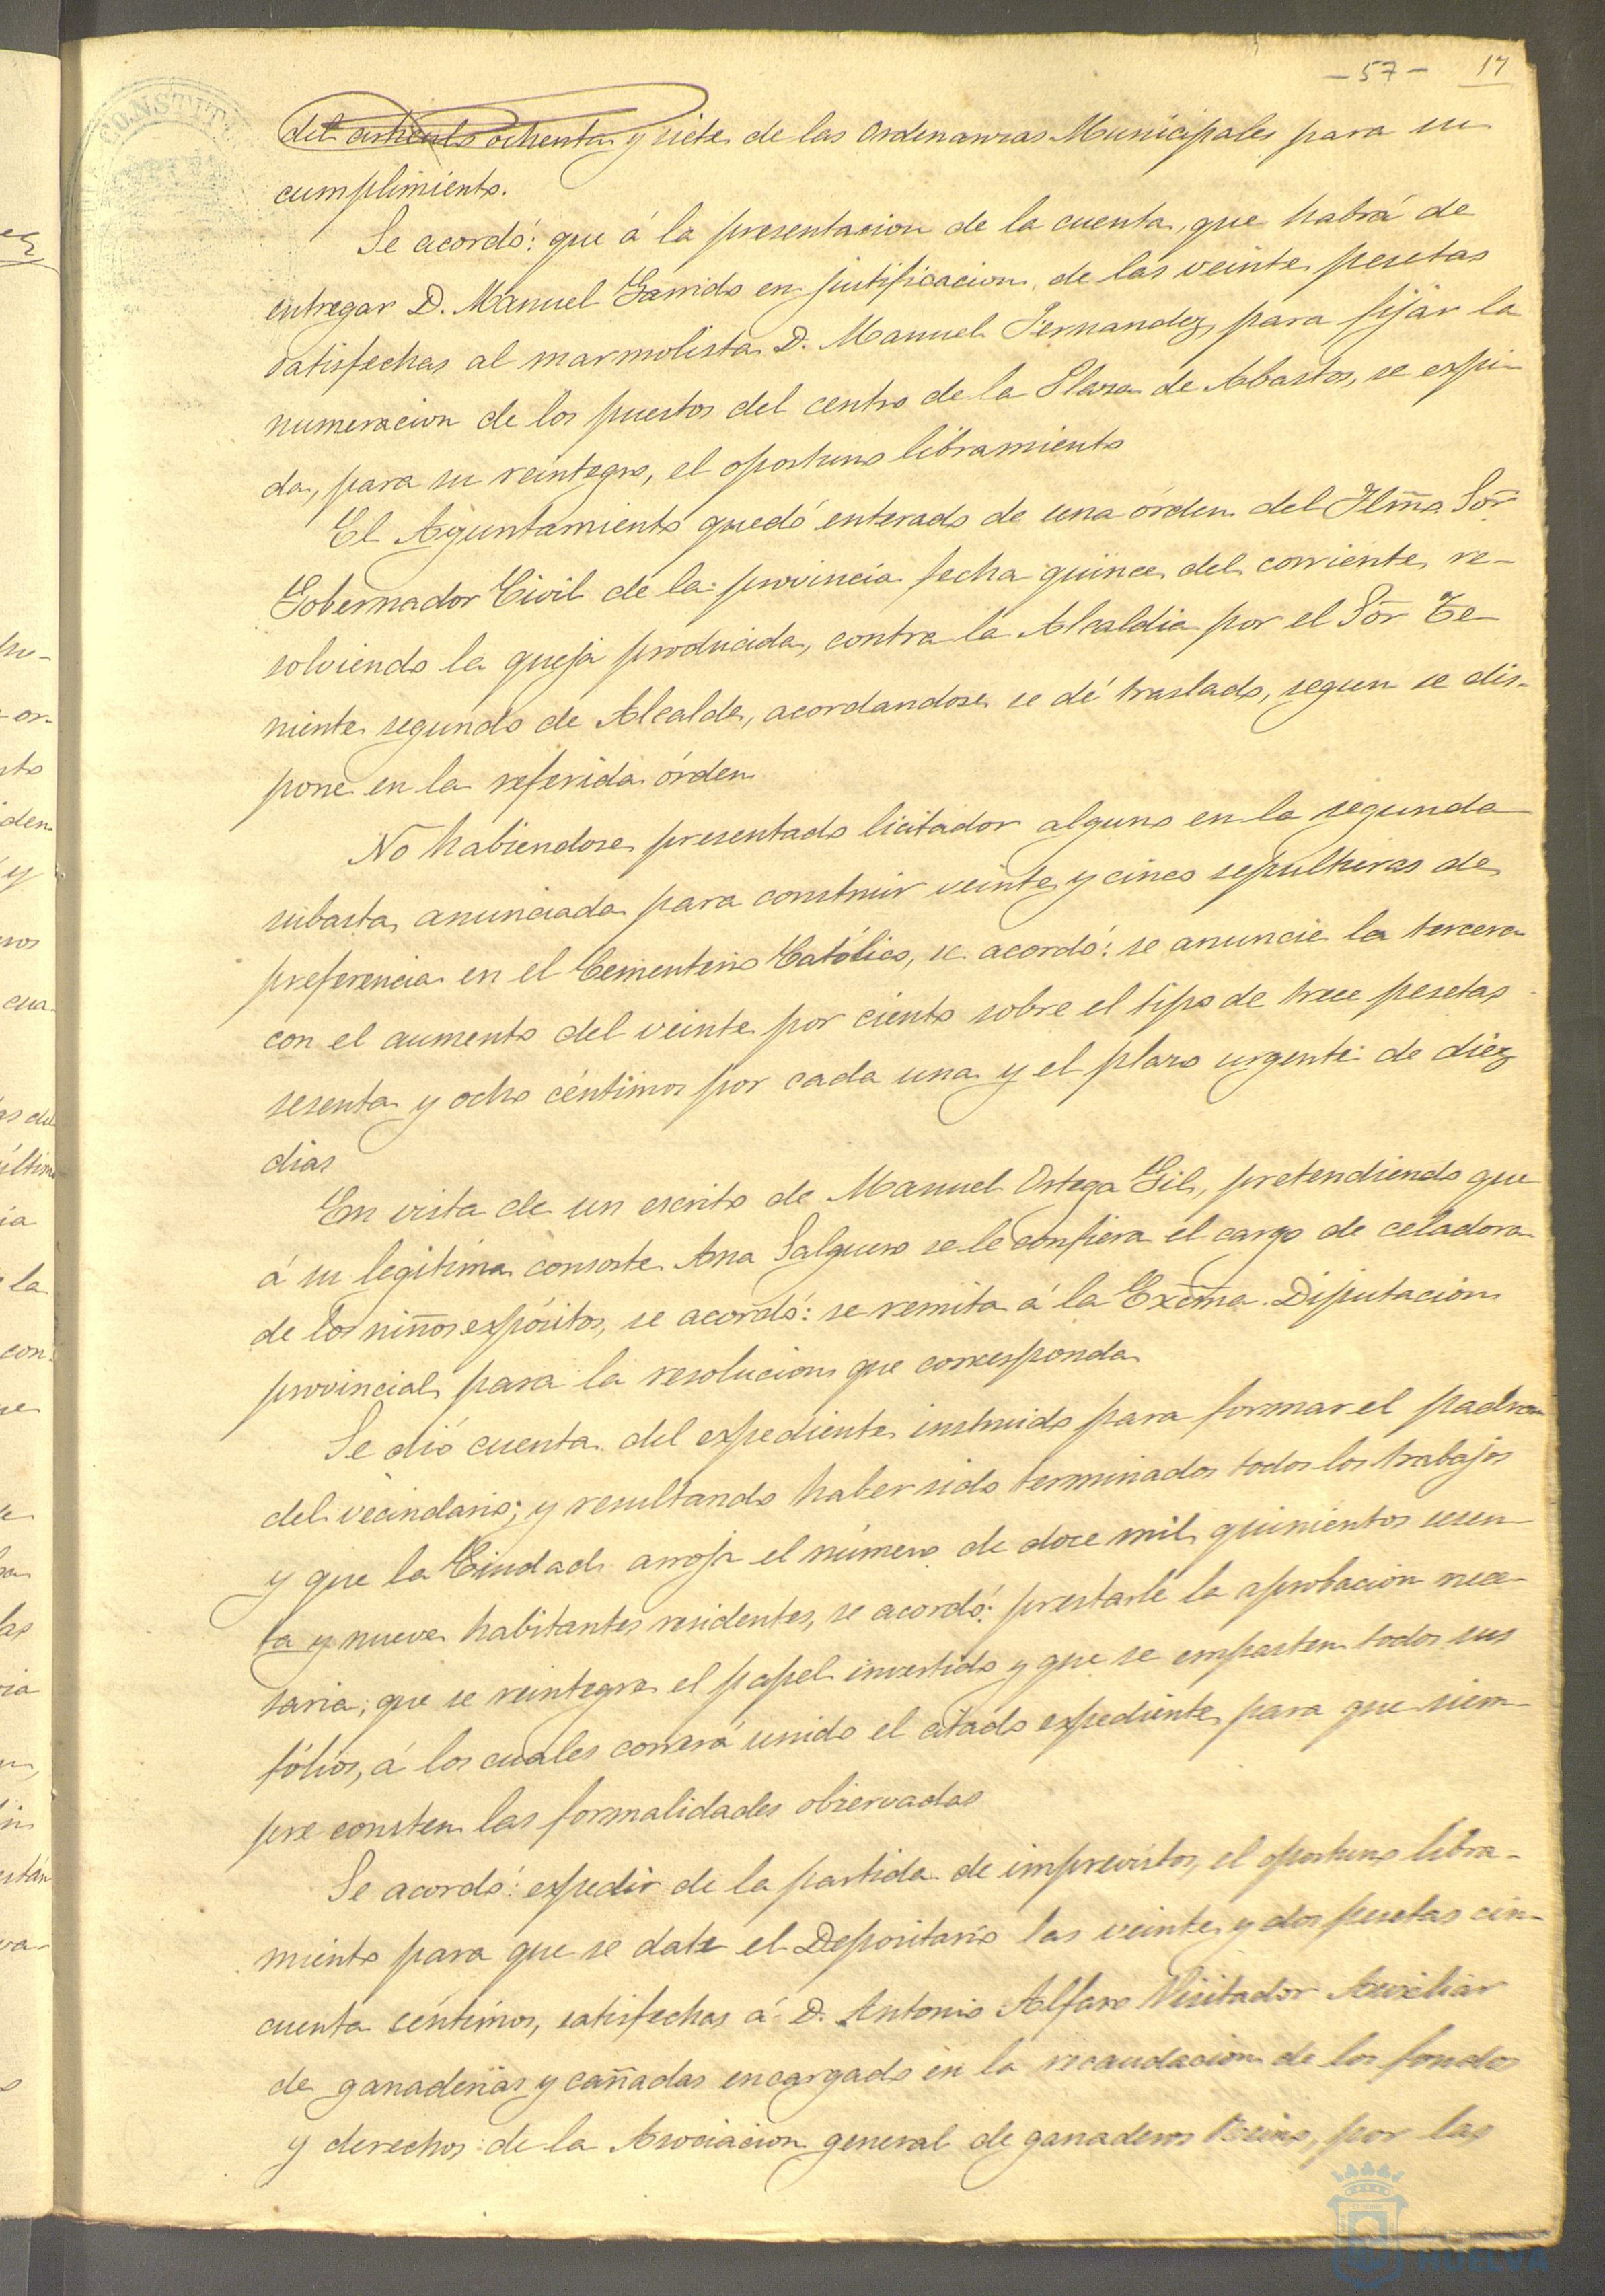 -57- 17
del articulo ochenta y siete de las Ordenanzas Municipales para su
cumplimiento.
Se acordó: que á la presentacion de la cuenta, que habrá de
entregar D. Manuel Garrido en justificacion de las veinte pesetas
satisfechas al marmolista D. Manuel Fernandez para fijar la
numeracion de los puestos del centro de la Plaza de Abastos, se expi-
da, para su reintegro, el oportuno libramiento
El Ayuntamiento quedó enterado de una órden del Ilmo Sor
Gobernador Civil de la provincia fecha quince del corriente re-
solviendo la queja producida, contra la Alcaldia por el Sor Te-
niente segundo de Alcalde, acordandose se dé traslado, segun se dis-
pone en la referida órden
No habiendose presentado licitador alguno en la segunda
subasta anunciada para construir veinte y cinco sepulturas de
preferencia en el Cementerio Católico, se acordó: se anuncie la tercera
con el aumento del veinte por ciento sobre el tipo de trece pesetas
sesenta y ocho céntimos por cada una y el plazo urgente de diez
dias
En vista de un escrito de Manuel Ortega Gil, pretendiendo que
á su legitima consorte Ana Salguero se le confiera el cargo de celadora
de los niños expósitos, se acordó: se remita á la Excma Diputacion
provincial para la resolucion que corresponda
Se dió cuenta del expediente instruido para formar el padron
del vecindario; y resultando haber sido terminados todos los trabajos
y que la Ciudad arroja el número de doce mil quinientos sesen-
ta y nueve habitantes residentes, se acordó: prestarle la aprobacion nece-
saria; que se reintegre el papel invertido y que se empasten todos sus
fólios, á los cuales correrá unido el citado expediente para que siem-
pre consten las formalidades observadas
Se acordó: expedir de la partida de imprevistos, el oportuno libra-
miento para que se date el Depositario las veinte y dos pesetas cin-
cuenta céntimos, satisfechas á D. Antonio Alfaro Visitador Auxiliar
de ganaderias y cañadas encargado en la recaudacion de los fondos
y derechos de la Asociacion general de ganaderos Reino, por las
HUELVA